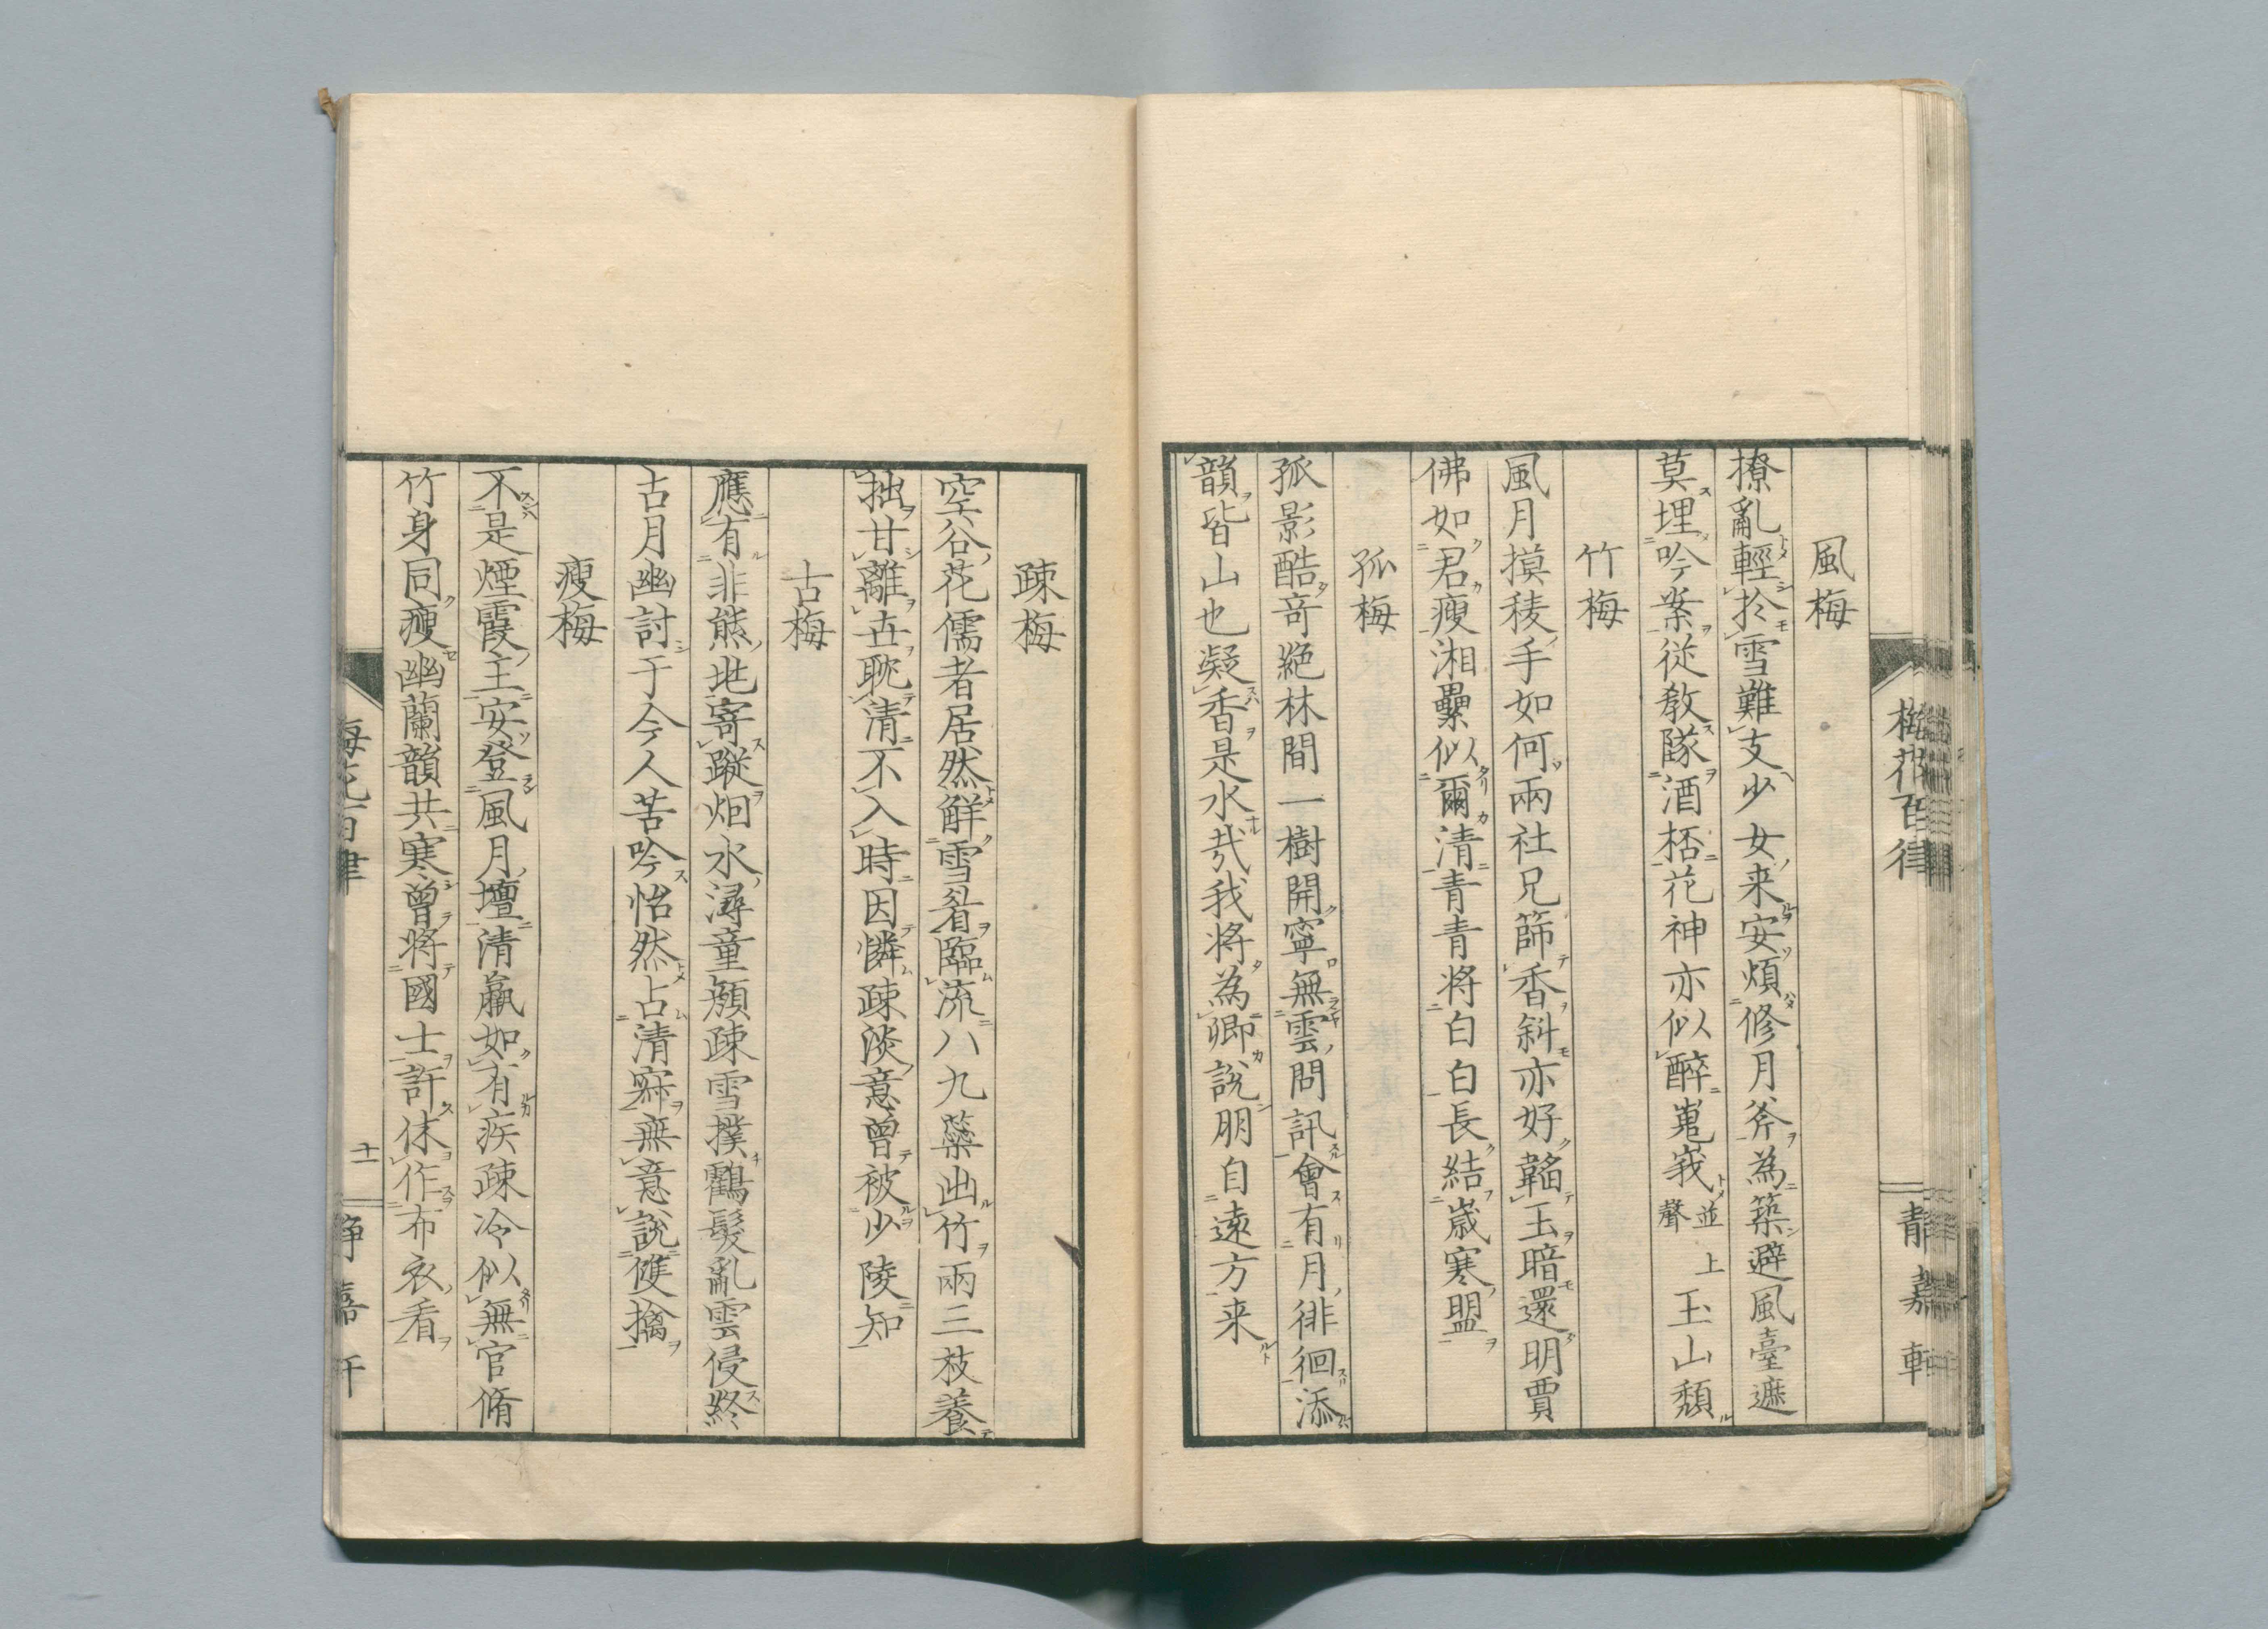 梅花百律
靜嘉軒
風梅
撩亂輕於雪難支少女来安煩修月斧為築避風臺遮
莫埋吟案従教隊酒桮花神亦似醉嵬峩並上聲玉山頽
竹梅
風月摸稜手如何兩社兄篩香斜亦好韜玉暗還明賈
佛如君瘦湘纍似爾清青青将白白長結歳寒盟
孤梅
孤影酷竒絕林間一樹開寧無雲問訊會有月徘徊添
韻皆山也凝香是水㢤我将為卿說朋自遠方来
疎梅
空谷花儒者居然鮮雪肴臨流八九蘂出竹兩三枝養
拙甘離卋耽清不入時因憐疎淡意曾被少陵知
古梅
應有非熊地寄蹤烟水潯童頽疎雪撲鶴髮亂雲侵終
古月幽討于今人苦吟怡然占清寐無意說雙擒
瘦梅
不是煙霞主安登風月壇清羸如有疾疎冷似無官脩
竹身同瘦幽蘭韻共寒曾将國士許休作布衣看
梅花百律
十一
靜嘉軒